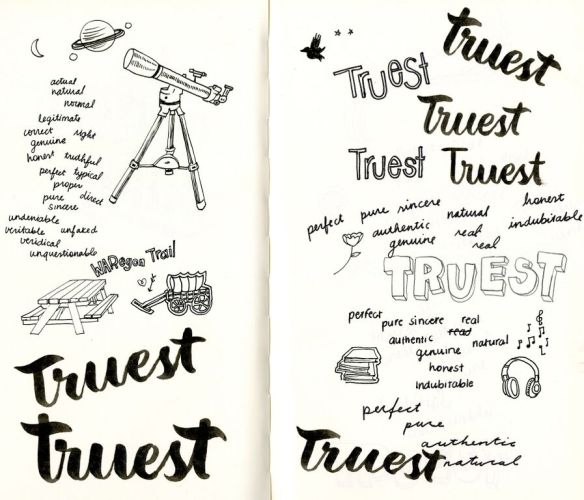 actual
natural
normal
legitimate
correct right
genuine
honest truthful
perfect typical
proper
pure direct
sincere
undeniable
veritable unfaked
veridical
unquestionable
WARegon Trail
Truest
Truest
Truest
Truest
Truest
Truest Truest
perfect pure sincere natural honest
authentic real indubitable
genuine real
TRUEST
perfect
pure sincere real
authentic read natural
genuine
honest
indubitable
perfect
pure
authentic
Truest natural